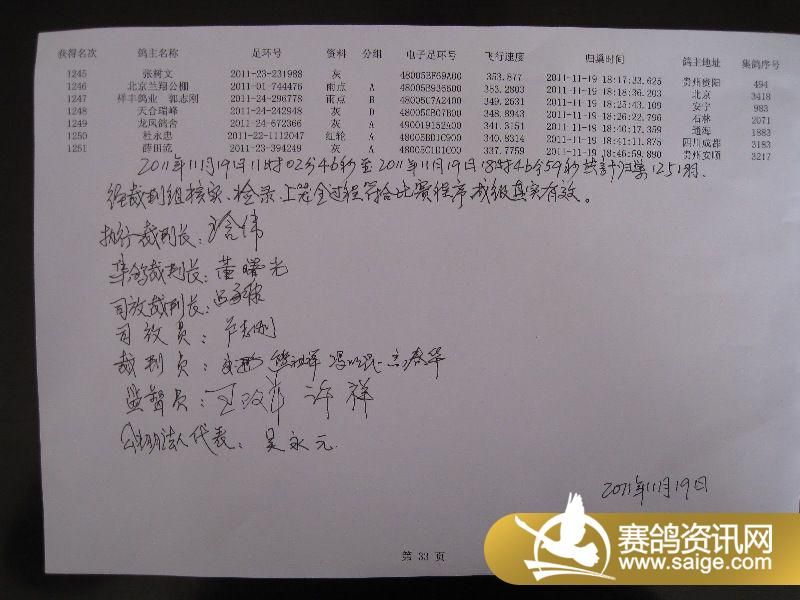 获得名次 鸽主名称 足环号 资料 分组 电子足环号 飞行速度 归巢时间 鸽主地址 集鸽序号
1245 张树文 2011-23-231988 灰 48005BF69A00 353.877 2011-11-19 18:17:33.625 贵州贵阳 494
1246 北京兰翔公棚 2011-01-744476 雨点 A 48005B936500 353.2803 2011-11-19 18:18:36.203 北京 3418
1247 祥丰鸽业 郭志刚 2011-24-296778 雨点 B 48005C7A2400 349.2631 2011-11-19 18:25:43.109 安宁 983
1248 天合瑞峰 2011-24-242948 灰 D 48005CB07B00 348.8943 2011-11-19 18:26:22.796 石林 2071
1249 龙凤鸽舍 2011-24-672366 灰 A 490019152A00 341.3151 2011-11-19 18:40:17.359 通海 1883
1250 杜永忠 2011-22-1112047 红轮 A 48005BD1C900 340.8314 2011-11-19 18:41:11.875 四川成都 3183
1251 薛田荒 2011-23-394249 灰 A 48005C1B1C00 337.7759 2011-11-19 18:46:59.890 贵州安顺 3217
2011年11月19日11时02分46秒至2011年11月19日18时46分59秒共计归巢1251羽.
经裁判组核实、检录、上笼全过程符合比赛程序成绩真实有效。
执行裁判长: 伟
集鸽裁判长: 董曙光
司放裁判长:
司放员:
裁判员:
监督员: 许祥
公棚法人代表: 吴永元
2011年11月19日
第 33 页
赛鸽资讯网
www.saige.com